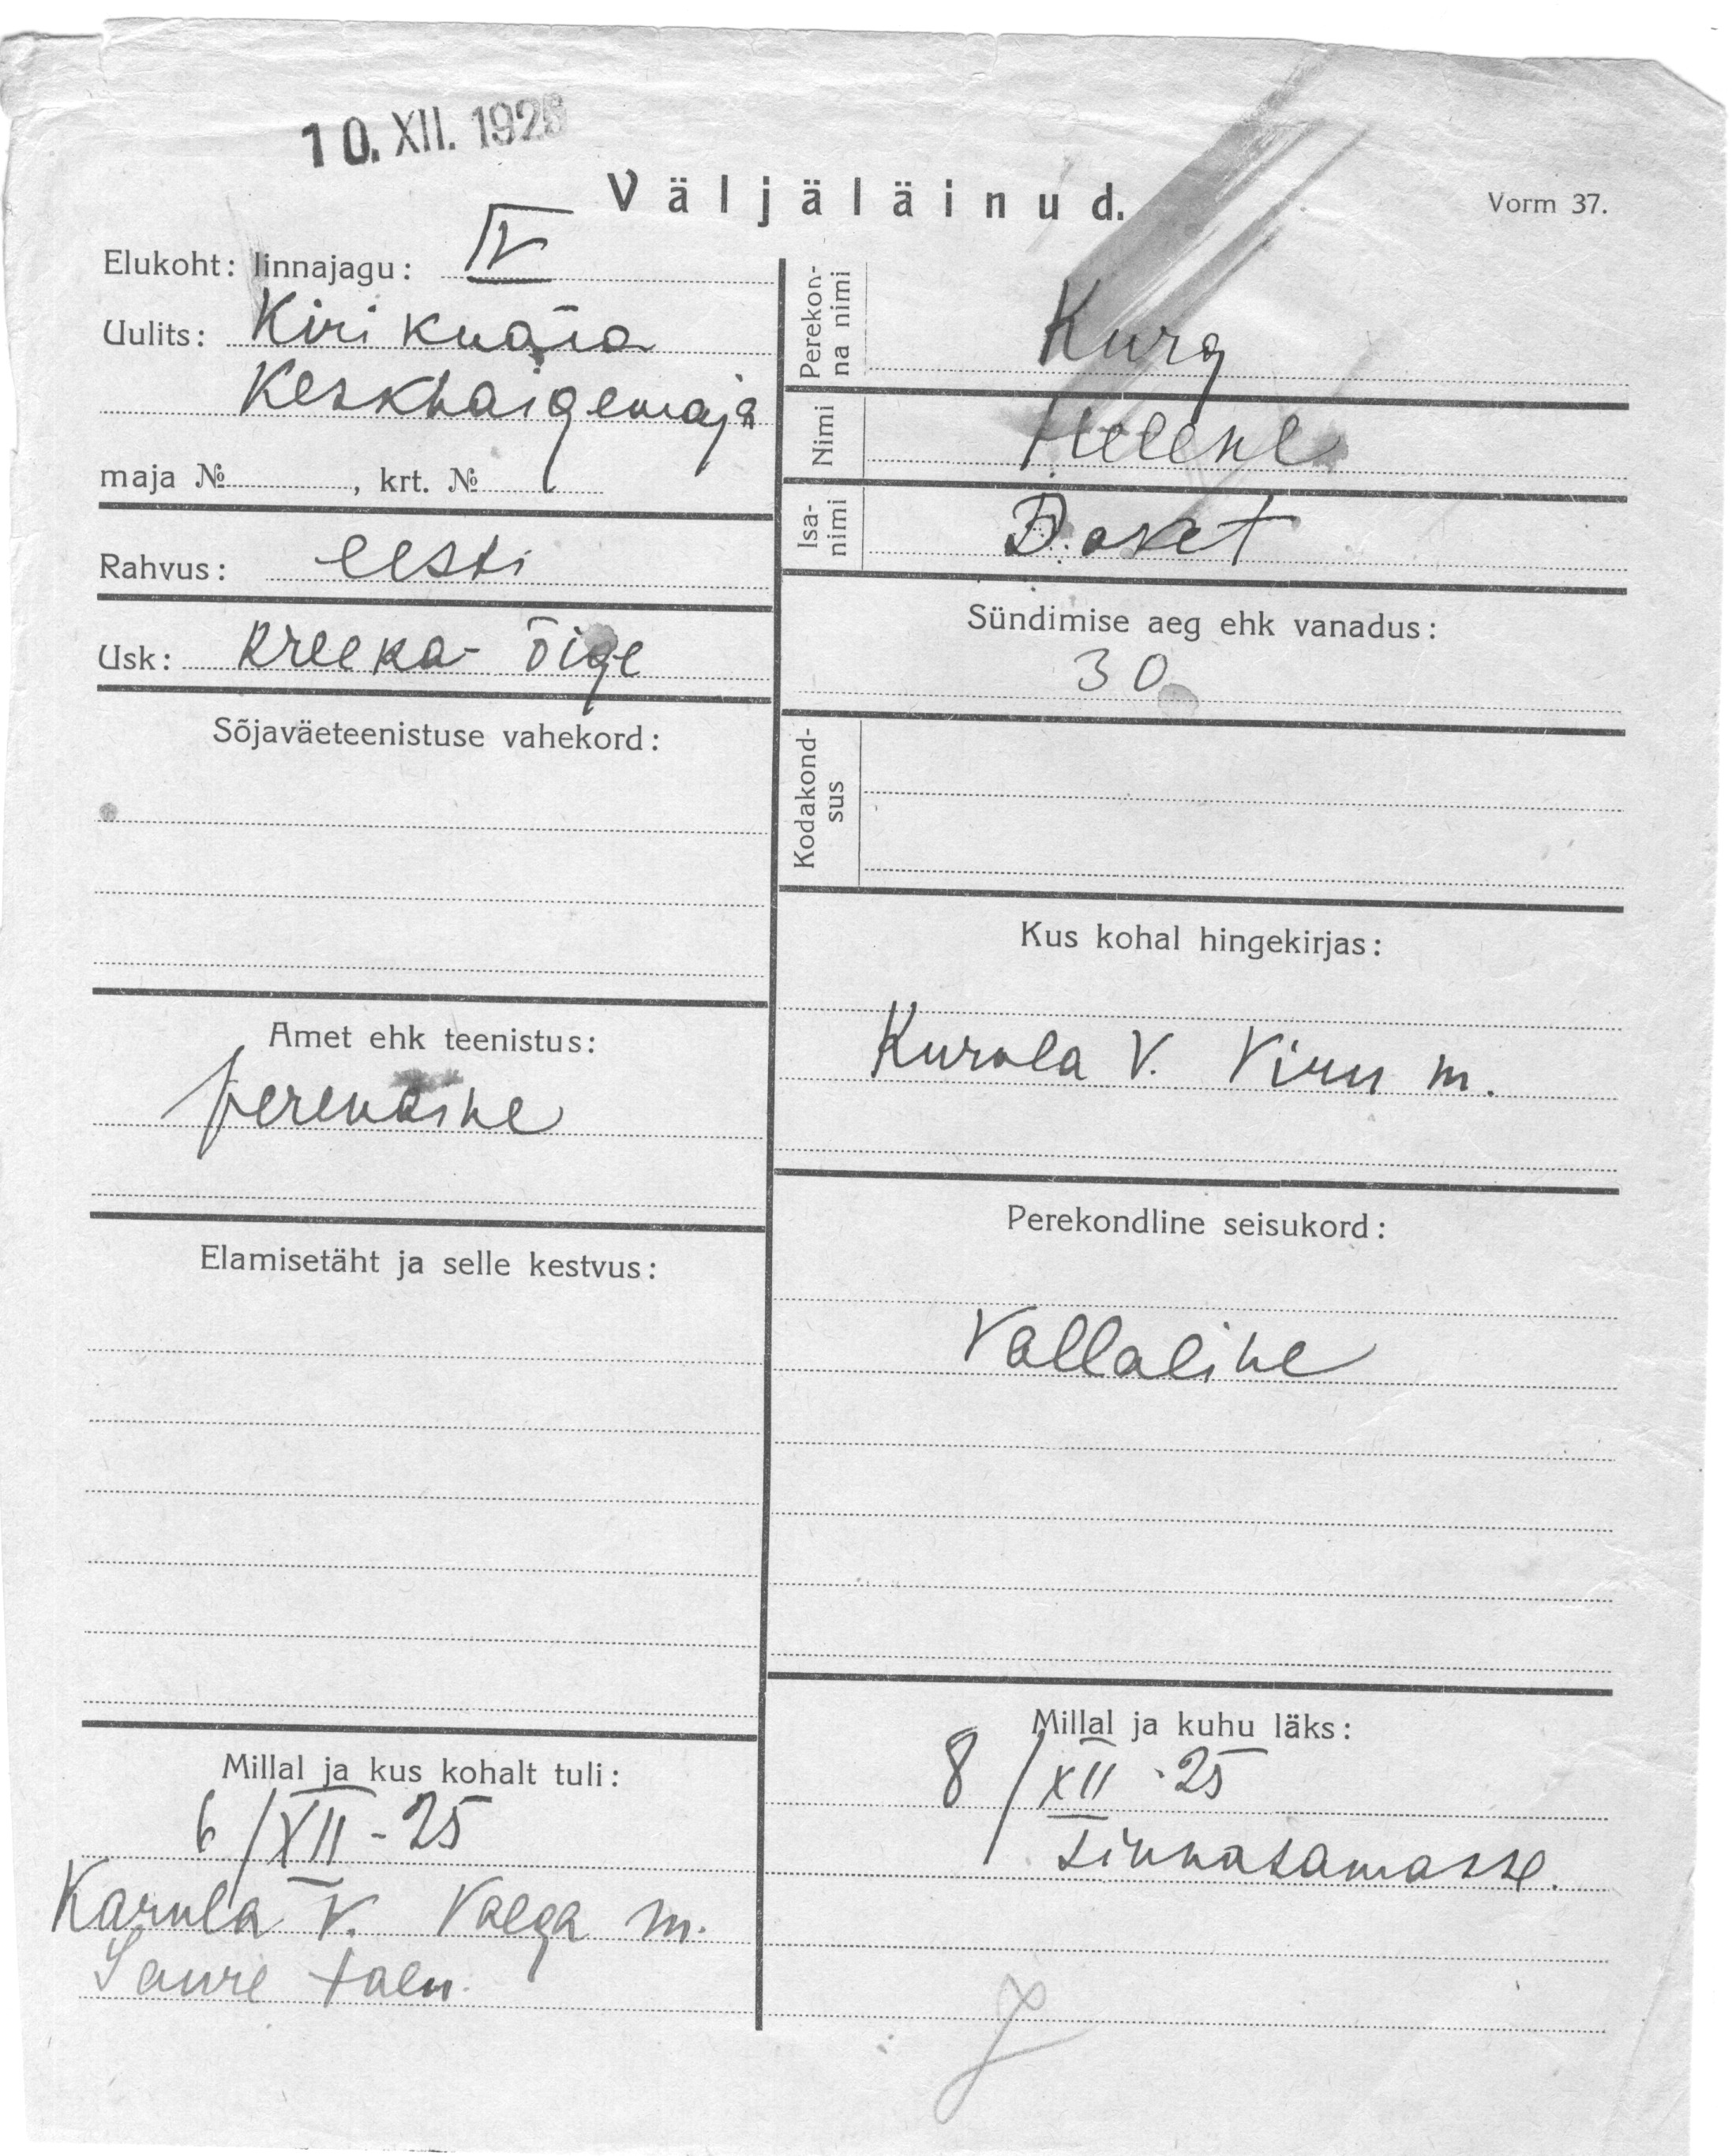 10. XII. 1925
Väljäläinud.
Vorm 37.
Elukoht: linnajagu: IV
Uulits: Kirikuaia
Keskhaigemaja
maja №, krt. №
Rahvus: eesti
Usk: Kreeka-õige
Sõjaväeteenistuse vahekord:
Amet ehk teenistus:
perenaine
Elamisetäht ja selle kestvus:
Millal ja kus kohalt tuli:
6/XII-25
Karula V. Valga m.
Saure talu.
Perekonna nimi
Kurg
Nimi
Helene
Isanimi
Sündimise aeg ehk vanadus:
30
Kodakondsus
Kus kohal hingekirjas:
V. Viru m.
Perekondline seisukord:
Vallaline
Millal ja kuhu läks:
8/XII-25
Sinnasamasse.